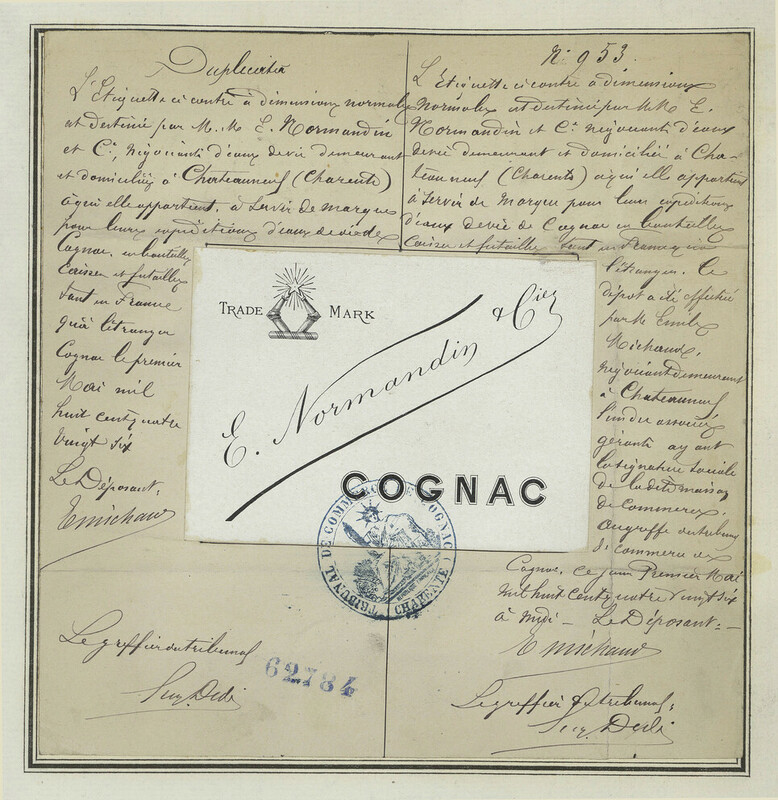 Duplicata
L'Etiquette ci contre à dimensions normales
est destinée par M.M. E. Normandin
et Cie, négociants d'eaux de vie demeurant
et domiciliés à Chateauneuf (Charente)
à qui elle appartient, à servir de marque
pour leurs expéditions d'eaux de vie de
Cognac, en bouteilles
Caisses et futailles
tant en France
qu'à l'étranger
Cognac le premier
Mai mil
huit cent quatre
vingt six
Le Déposant:
E Michaud
Le greffier du tribunal
62784
No 953.
L'Etiquette ci contre à dimensions
normales est destinée par M.M. E.
Normandin et Cie négociants d'eaux
de vie demeurant et domiciliés à Cha-
teauneuf (Charente) à qui elle appartient
à servir de Marque pour leurs expéditions
d'eaux de vie de Cognac en bouteilles
Caisses et futailles tant en France qu'à
l'étranger. Ce
dépôt a été effectué
par M. Emile
Michaud,
négociant demeurant
à Chateauneuf
l'un des associés
gérants ayant
la signature sociale
de la dite maison
de commerce.
au greffe du tribunal
de commerce de
Cognac, ce jour Premier Mai
mil huit cent quatre vingt six
à midi — Le Déposant: —
E Michaud
Le greffier du tribunal:
TRADE MARK
E. Normandin & Cie
COGNAC
TRIBUNAL DE COMMERCE DE COGNAC
CHARENTE